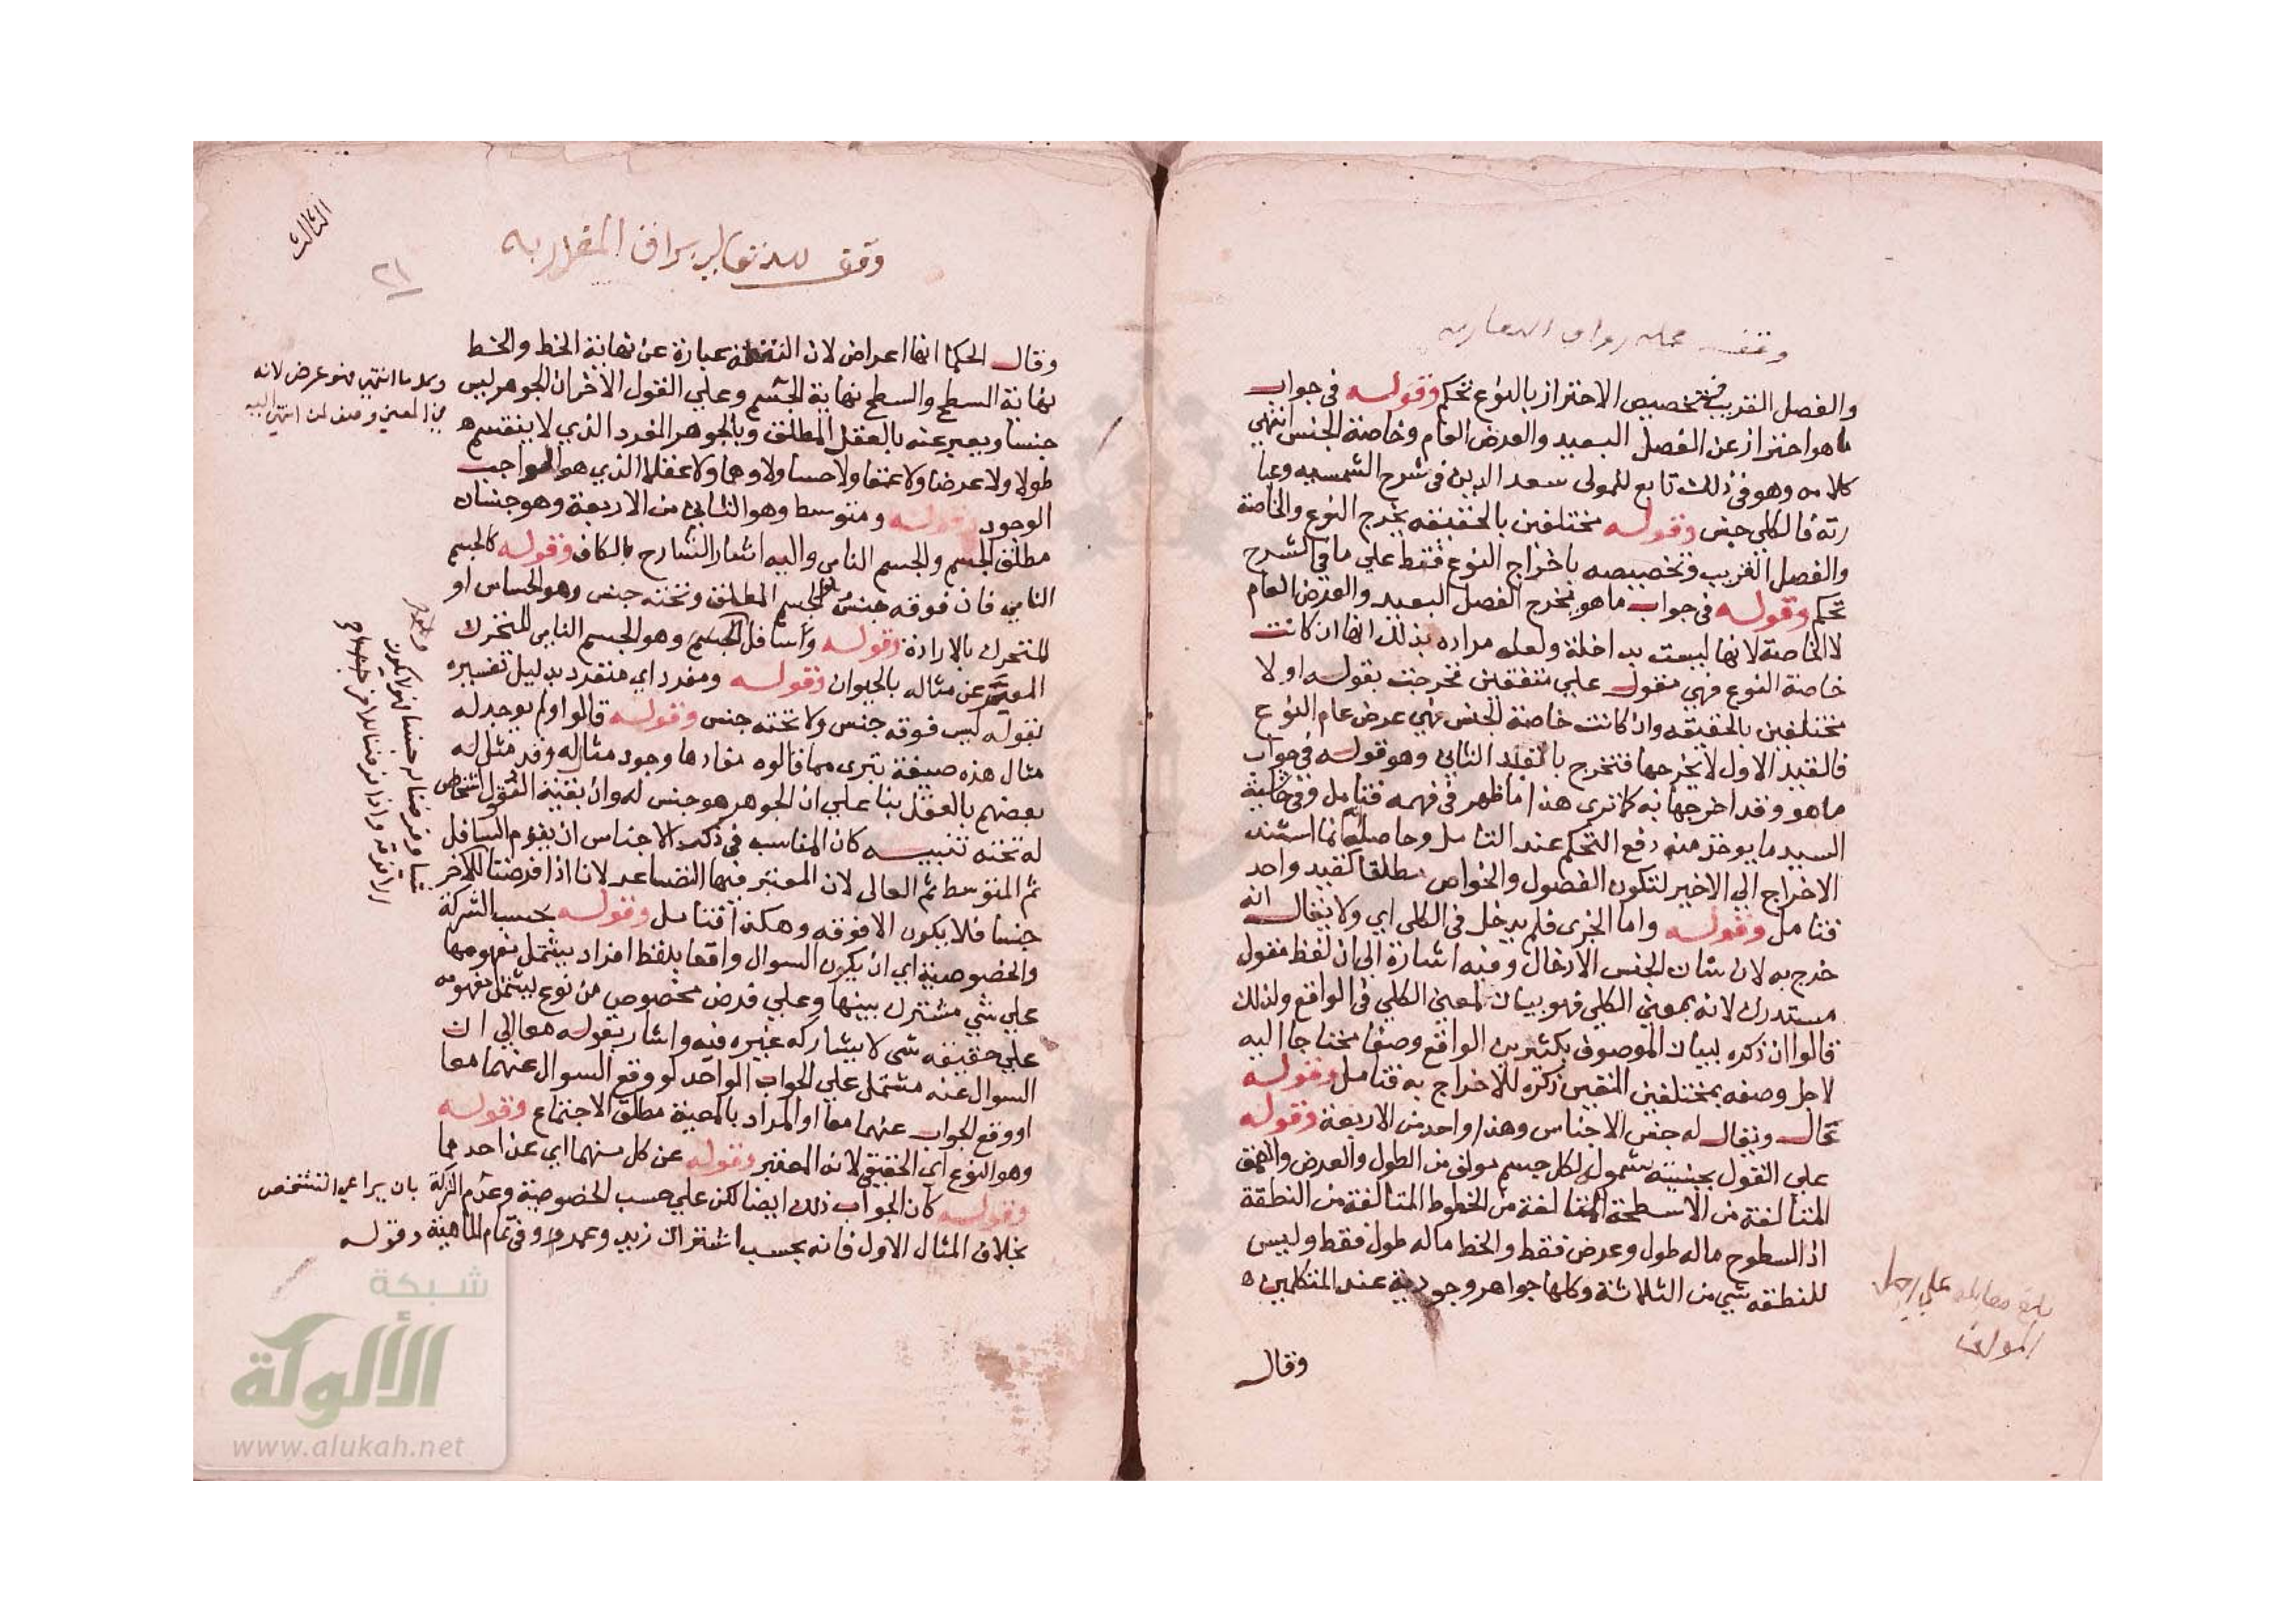 والفصل القريب فتخصيص الاحتراز بالنوع تحكم وقوله في جواب
ما هو احتراز عن الفصل البعيد والعرض العام وخاصة الجنس انتهي
كلامه وهو في ذلك تابع للمولى سعد الدين في شرح الشمسيه وعبا
رته فالكلي جنس وقوله مختلفين بالحقيقه يخرج النوع والخاصة
والفصل القريب وتخصيصه باخراج النوع فقط علي ما في الشرح
تحكم وقوله في جواب ما هو يخرج الفصل البعيد والعرض العام
لا الخاصة لانها ليست بداخلة ولعله مراده بذلك انها ان كانت
خاصة النوع فهي مقول علي متفقين فخرجت بقوله اولا
مختلفين بالحقيقه وان كانت خاصة الجنس فهي عرض عام النوع
فالقيد الاول لا يخرجها فتخرج بالقيد الثاني وهو قوله في جواب
ما هو وقد اخرجها به كما تري هذا ما ظهر في فهمه فتامل وفي حاشية
السيد ما يوخذ منه دفع التحكم عند التامل وحاصله انما استند
الاخراج الي الاخير لتكون الفصول والخواص مطلقا كقيد واحد
فتامل وقوله واما الجزى فلم يدخل في الكلي اي ولا يقال انه
خرج به لان شان الجنس الادخال وفيه اشارة الي ان لفظ مقول
مستدرك لانه بمعني الكلي فهو بيان لمعني الكلي في الواقع ولذلك
قالوا ان ذكره لبيان الموصوف بكثيرين الواقع وصفا محتاجا اليه
لاجل وصفه بمختلفين المتعين ذكره للاخراج به فتامل وقوله
عال ويقال له جنس الاجناس وهذا واحد من الاربعة وقوله
علي القول بجنسيته شموله لكل جسم مولف من الطول والعرض والعمق
المتالفة من الاسطحة المتالفة من الخطوط المتالفة من النطقة
اذ السطوح ماله طول وعرض فقط والخط ماله طول فقط وليس
للنطقه شي من الثلاثة وكلها جواهر وجودية عند المتكلمين
وقال
بلغ مقابله علي اصل
المولف
الثالث
وقف لله تعالي برواق المغاربه
٢١
وقال الحكما انها اعراض لان النقطة عبارة عن نهاية الخط والخط
نهاية السطح والسطح نهاية الجسم وعلي القول الاخر ان الجوهر ليس
جنسا ويعبر عنه بالعقل المطلق وبالجوهر الفرد الذي لا ينقسم
طولا ولا عرضا ولا عمقا ولا حسا ولا وهما ولا عقلا الذي هو الواجب
الوجود وقوله ومتوسط وهو الثاني من الاربعة وهو جنسان
مطلق الجسم والجسم النامي واليه اشار الشارح بالكاف وقوله كالجسم
النامي فان فوقه جنس الجسم المطلق وتحته جنس وهو الحساس او
المتحرك بالارادة وقوله واسافل الجسم وهو الجسم النامي المتحرك
المعبر عن مثاله بالحيوان وقوله ومفرد اي منفرد بدليل تفسيره
بقوله ليس فوقه جنس ولا تحته جنس وقوله قالوا ولم يوجد له
مثال هذه صيغة تبرى مما قالوه مفادها وجود مثاله وقد مثل له
بعضهم بالعقل بنا علي ان الجوهر هو جنس له وان بقية القول اشخاص
له تحته تنبيه كان المناسب في ذكر الاجناس ان يقدم السافل
ثم المتوسط ثم العالي لان المعتبر فيها التصاعد لانا اذا فرضنا للاخر
جنسا فلا يكون الا فوقه وهكذا فتامل وقوله بحسب الشركة
والخصوصية اي ان يكون السوال واقعا بلفظ افراد يشتمل مفهومها
علي شي مشترك بينها وعلي فرض مخصوص من نوع يشتمل مفهومه
علي حقيقه شي لا يشاركه غيره فيه واشار بقوله معا الي ان
السوال عنه مشتمل علي الجواب الواحد لو وقع السوال عنهما معا
او وقع الجواب عنهما معا او المراد بالمعية مطلق الاجتماع وقوله
وهو النوع اي الحقيقي لانه المعتبر وقوله عن كل منهما اي عن احدهما
وقوله كان الجواب ذلك ايضا لكن علي حسب الخصوصية وعدم الشركة بان يراعي التشخص
بخلاف المثال الاول فانه بحسب اشتراك زيد وعمرو في تمام الماهية وقوله
شبكة
الألوكة
www.alukah.net